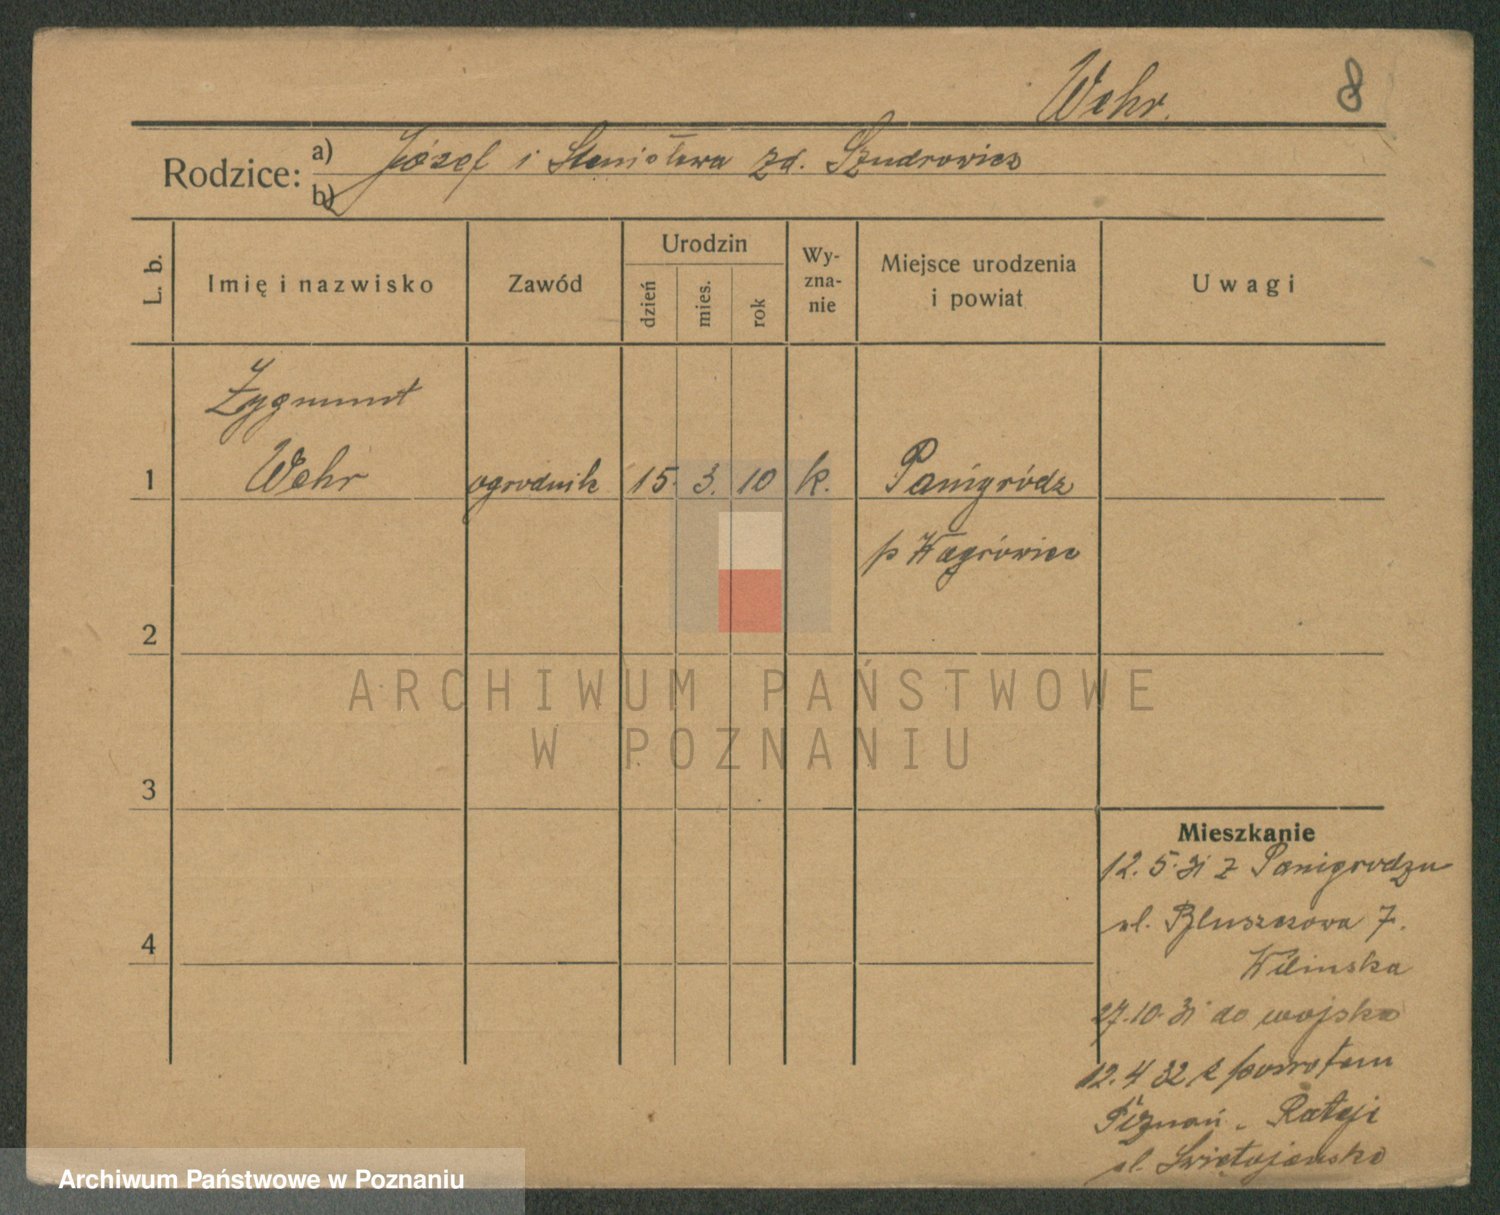 Wehr. 8
Rodzice: a) Józef i Stanisława zd. Szudrowicz
b)
L. b. Imię i nazwisko Zawód Urodzin dzień mies. rok Wy-zna-nie Miejsce urodzenia i powiat Uwagi
Zygmunt
1 Wehr ogrodnik 15. 3. 10 k. Panigródz
p Wągrówiec
2
ARCHIWUM PAŃSTWOWE
W POZNANIU
3
Mieszkanie
12. 5. 31 z Panigrodzu
ul. Bluszczowa 7.
4
Wilinska
27. 10. 31 do wojska
12. 4 32 z powrotem
Poznań. Rataji
ul. Świętojańska
Archiwum Państwowe w Poznaniu